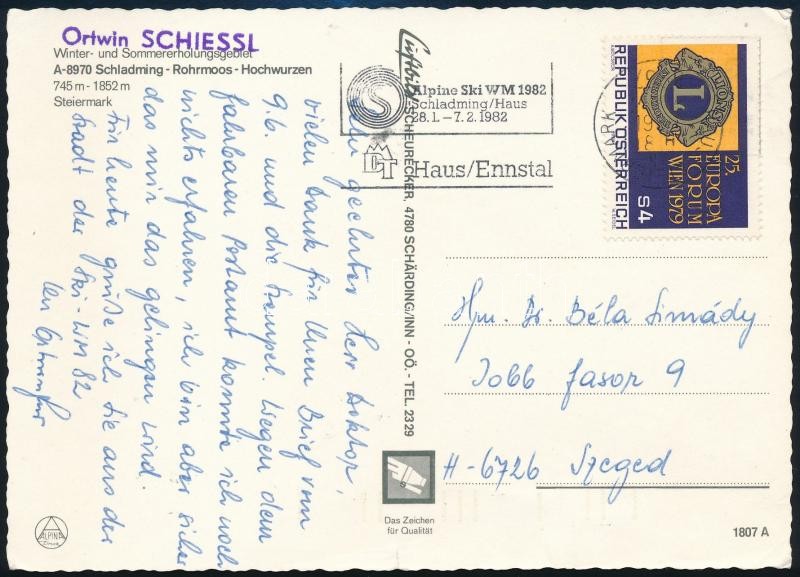 Ortwin SCHIESSL
Winter- und Sommererholungsgebiet
A-8970 Schladming - Rohrmoos - Hochwurzen
745 m - 1852 m
Steiermark
Sehr geehrter Herr Doktor,
vielen Dank für Ihren Brief vom
9.6. und die Stempel. Wegen dem
fahrbaren Postamt konnte ich noch
nichts erfahren, ich bin aber sicher
das mir das gelingen wird.
Für heute grüße ich Sie aus der
Stadt der Ski-WM 82
Ihr
Luftbild SCHEURECKER, 4780 SCHÄRDING/INN - OÖ. - TEL. 2329
Alpine Ski WM 1982
Schladming/Haus
28.1. - 7.2. 1982
Haus/Ennstal
REPUBLIK ÖSTERREICH
LIONS
L
25.
EUROPA
FORUM
WIEN 1979
S 4
Hrn. Dr. Béla Simády
Jobb fasor 9
H-6726 Szeged
Das Zeichen
für Qualität
ALPINA
Druck
1807 A